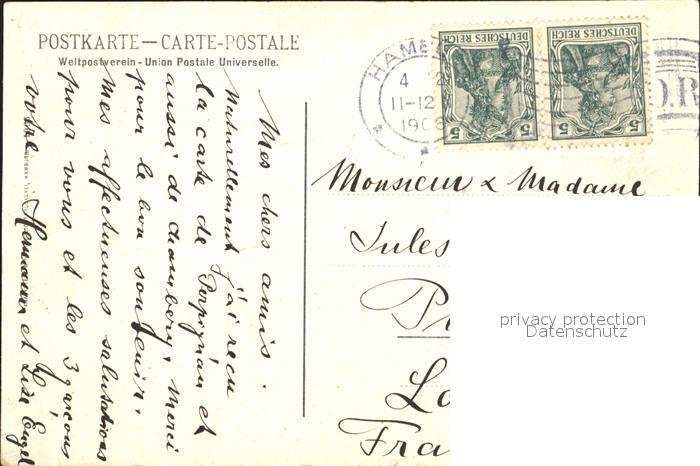 POSTKARTE — CARTE-POSTALE
Weltpostverein - Union Postale Universelle.
HAMB
4
11-12
190
DEUTSCHES REICH
5
5
DEUTSCHES REICH
5
5
Mes chers amis.
Naturellement j'ai reçu
la carte de Perpignan et
aussi de Chambéry, merci
pour le bon souvenir.
Mes affectueuses salutations
pour vous et les 3 garçons
votre Hermann et Lise Engel
Monsieur & Madame
Jules
Pr
Lo
Fra
privacy protection
Datenschutz